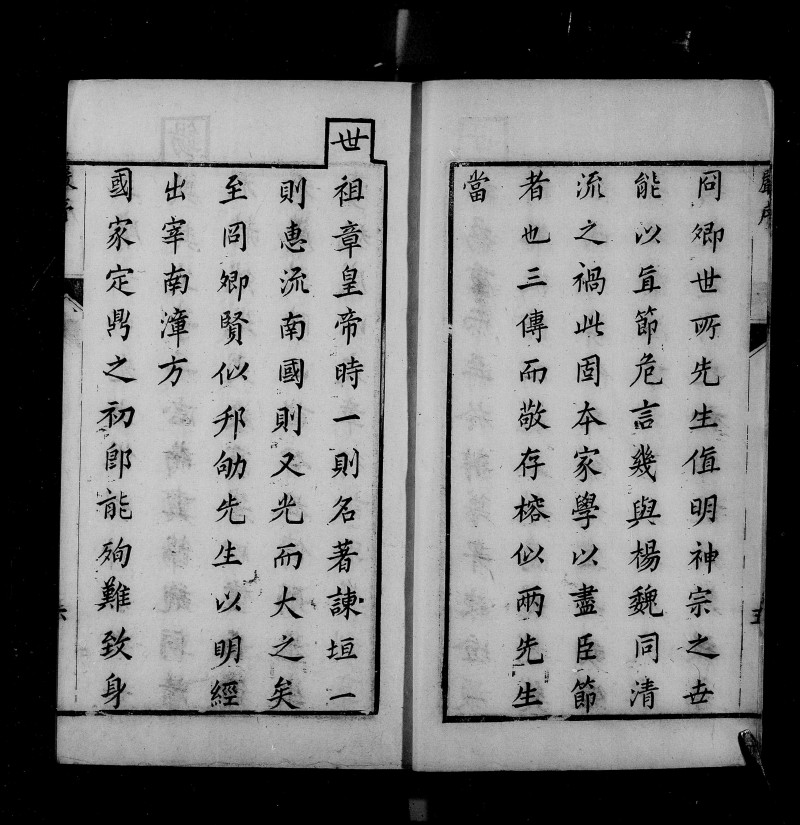 冏卿世所先生值明神宗之世
能以直節危言幾與楊魏同清
流之禍此固本家學以盡臣節
者也三傳而敬存榕似兩先生
當
世
祖章皇帝時一則名著諫垣一
則惠流南國則又光而大之矣
至冏卿賢似邦劬先生以明經
出宰南漳方
國家定鼎之初即能殉難致身